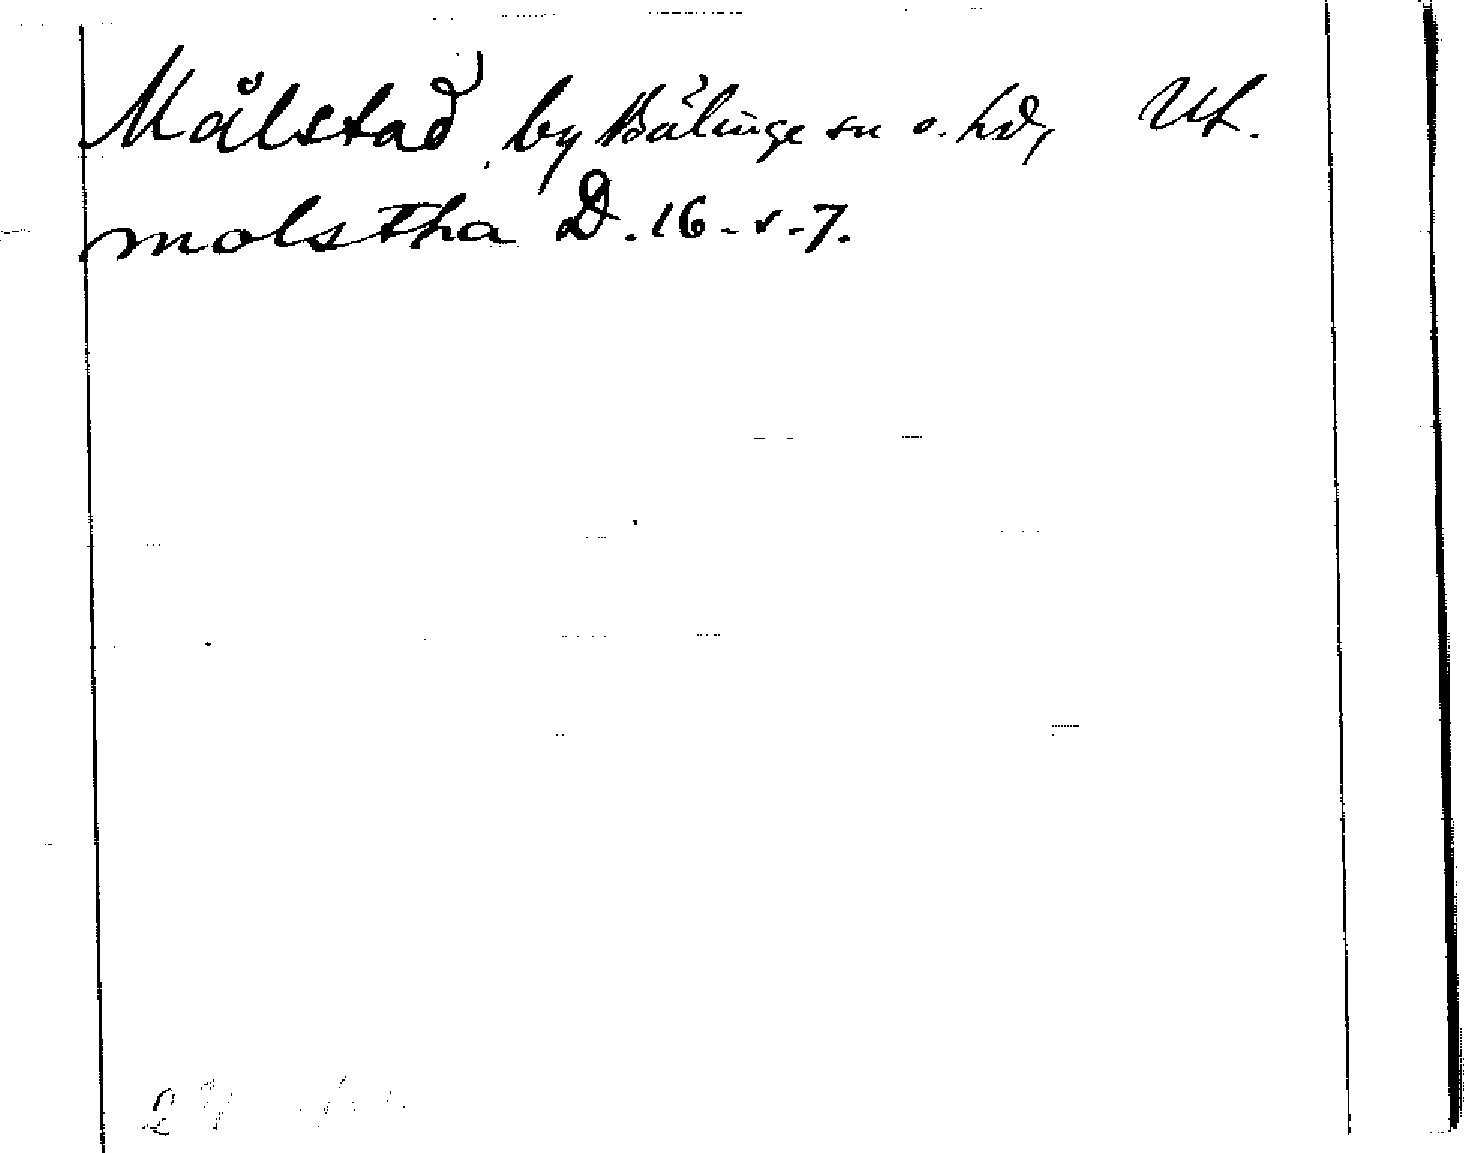 Målstad by Bälinge sn o. hd, Upl.
molstha D. 16 - v - 7.